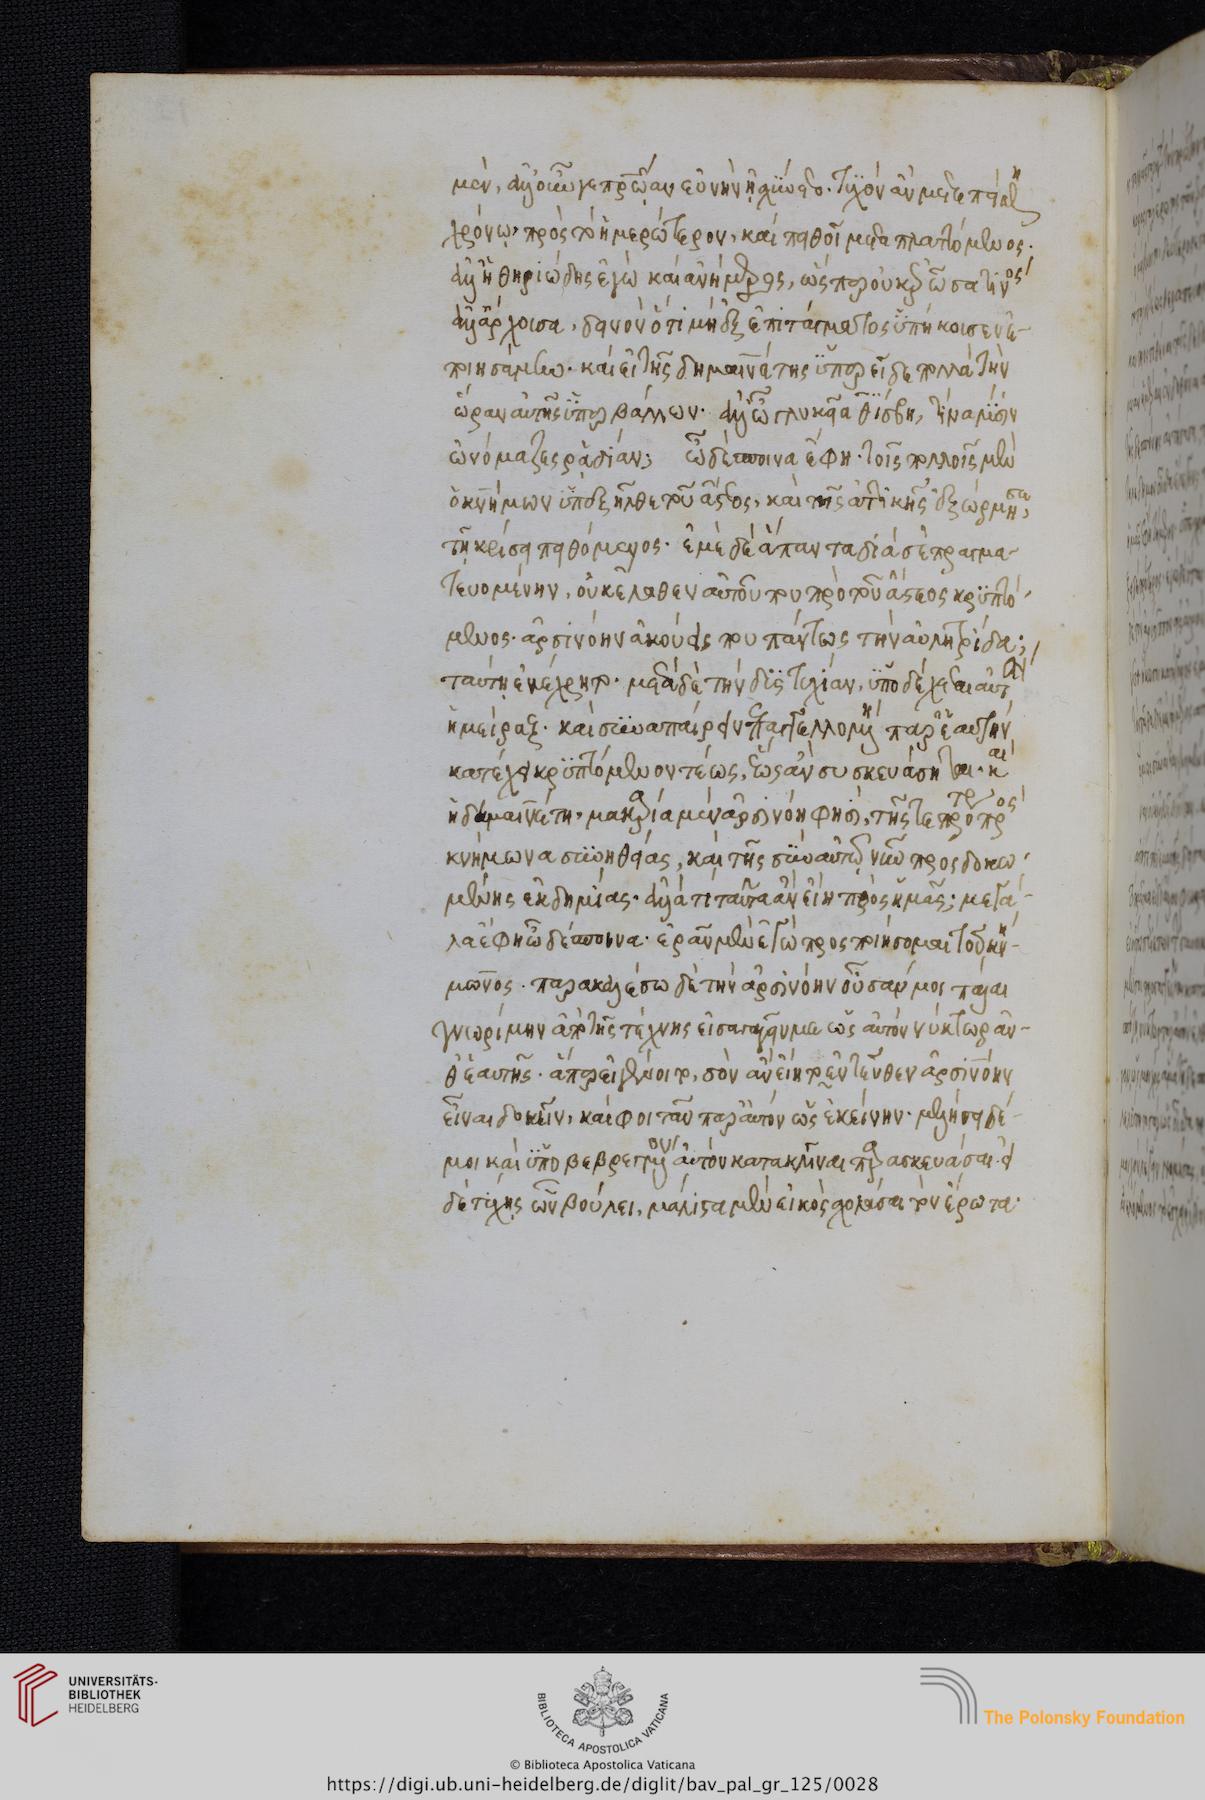 μὲν, ἀλλ' οὔπω γε πρώην εὐνὴν ᾐσχύνετο. τυχὸν ἂν μετέπεισα τῷ
χρόνῳ, πρὸς τὸ ἡμερώτερον, καὶ πειθοῖ μεταπλαττόμενος.
ἀλλ' ἡ θηριώδης ἐγὼ καὶ ἀνήμερος, ὥσπερ οὐκ ἐρῶσα τινος
ἀλλ' ἄρχουσα, δεινὸν ὅτι μὴ ἐξ ἐπιτάγματος ὑπήκουσεν ἐ-
ποιησάμην. καὶ εἰ τῆς δημαινέτης ὑπερεῖδε πολλὰ τὴν
ὥραν αὐτῆς ὑπερβάλλων. ἀλλ' ὦ γλυκεῖα θίσβη, τίνα λύσιν
ὠνόμαζες ῥᾳδίαν; ὦ δέσποινα ἔφη. τοῖς πολλοῖς μὲν
ὁ κνήμων ὑπεξῆλθε τοῦ ἄστεος, καὶ τῆς ἀττικῆς ἐξώρμησε,
τῇ κρίσει πειθόμενος. ἐμὲ δὲ ἅπαντα διὰ σὲ πραγμα-
τευομένην, οὐκ ἔλαθεν αὐτοῦ που πρὸ τοῦ ἄστεος κρυπτό-
μενος. ἀρσινόην ἀκούεις που πάντως τὴν αὐλητρίδα;
ταύτῃ ἐκέχρητο. μετὰ δὲ τὴν δυστυχίαν, ὑποδέχεται αὐτὸν
ἡ μεῖραξ. καὶ συναπαίρειν ἐπαγγελλομένη παρ' ἑαυτὴν
κατέχει κρυπτόμενον τέως, ἕως ἂν συσκευάσηται. καὶ
ἡ δημαινέτη. μακαρία μὲν ἀρσινόη φησὶ, τῆς τε πρότερον πρὸς
κνήμωνα συνηθείας, καὶ τῆς σὺν αὐτῷ νῦν προσδοκω-
μένης ἐκδημίας. ἀλλὰ τί ταῦτα ἂν εἴη πρὸς ἡμᾶς; μεγά-
λα ἔφη ὦ δέσποινα. ἐρᾶν μὲν ἐγὼ προσποιήσομαι τοῦ κνή-
μωνος. παρακαλέσω δὲ τὴν ἀρσινόην οὖσάν μοι πάλαι
γνωρίμην ἀπὸ τῆς τέχνης εἰσαγαγεῖν με ὡς αὐτὸν νύκτωρ ἀν-
θ' ἑαυτῆς. ἅπερ εἰ γένοιτο, σὸν ἂν εἴη τὸ ἐντεῦθεν ἀρσινόην
εἶναι δοκεῖν, καὶ φοιτᾶν παρ' αὐτὸν ὡς ἐκείνην. μελήσει δέ
μοι καὶ ὑποβεβρεγμένον αὐτὸν κατακλῖναι παρασκευάσαι. εἰ
δὲ τύχῃς ὧν βούλει, μάλιστα μὲν εἰκὸς σχολάσαι τὸν ἔρωτα.
UNIVERSITÄTS-
BIBLIOTHEK
HEIDELBERG
BIBLIOTECA APOSTOLICA VATICANA
The Polonsky Foundation
© Biblioteca Apostolica Vaticana
https://digi.ub.uni-heidelberg.de/diglit/bav_pal_gr_125/0028